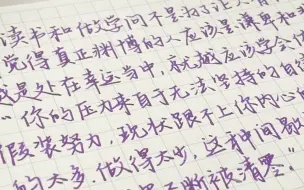 读书和做学问不是为了让人
觉得真正渊博的人应该是谦卑和
越是处在幸运当中,就越应该学会体
"你的压力来自于无法坚持的自
假装努力,现状跟不上你的心
的太多做得太少,这中间
不断被清零"